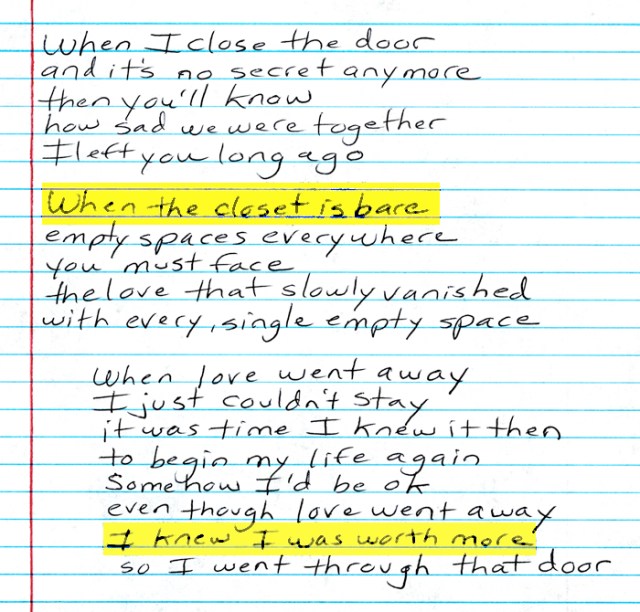 When I close the door
and it's no secret anymore
then you'll know
how sad we were together
I left you long ago
When the closet is bare
empty spaces everywhere
you must face
the love that slowly vanished
with every, single empty space
When love went away
I just couldn't stay
it was time I knew it then
to begin my life again
Somehow I'd be ok
even though love went away
I knew I was worth more
so I went through that door